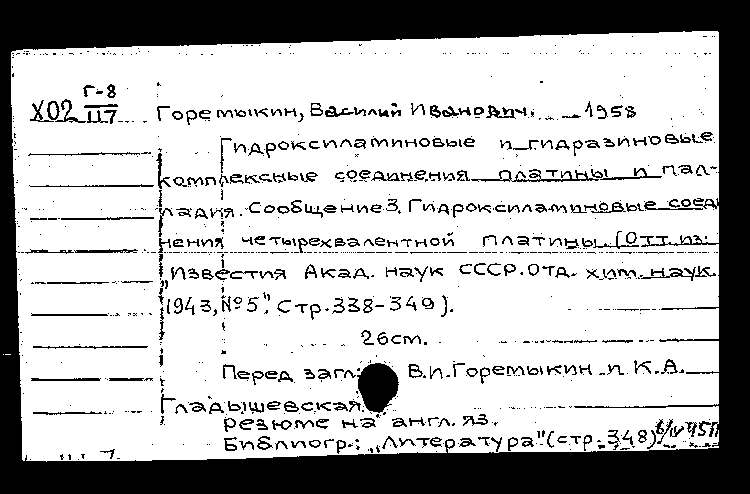 Г-8
X02 117 Горемыкин, Василий Иванович. 1958
Гидроксиламиновые и гидразиновые
комплексные соединения платины и пал-
ладия. Сообщение 3. Гидроксиламиновые соеди
нения четырехвалентной платины. [Отт. из:
"Известия Акад. наук СССР. Отд. хим. наук.
1943, №5". Стр. 338-349).
26 см.
Перед загл: В.И. Горемыкин и К.А.
Гладышевская.
резюме на англ. яз.
Библиогр.: "Литература" (стр. 348)